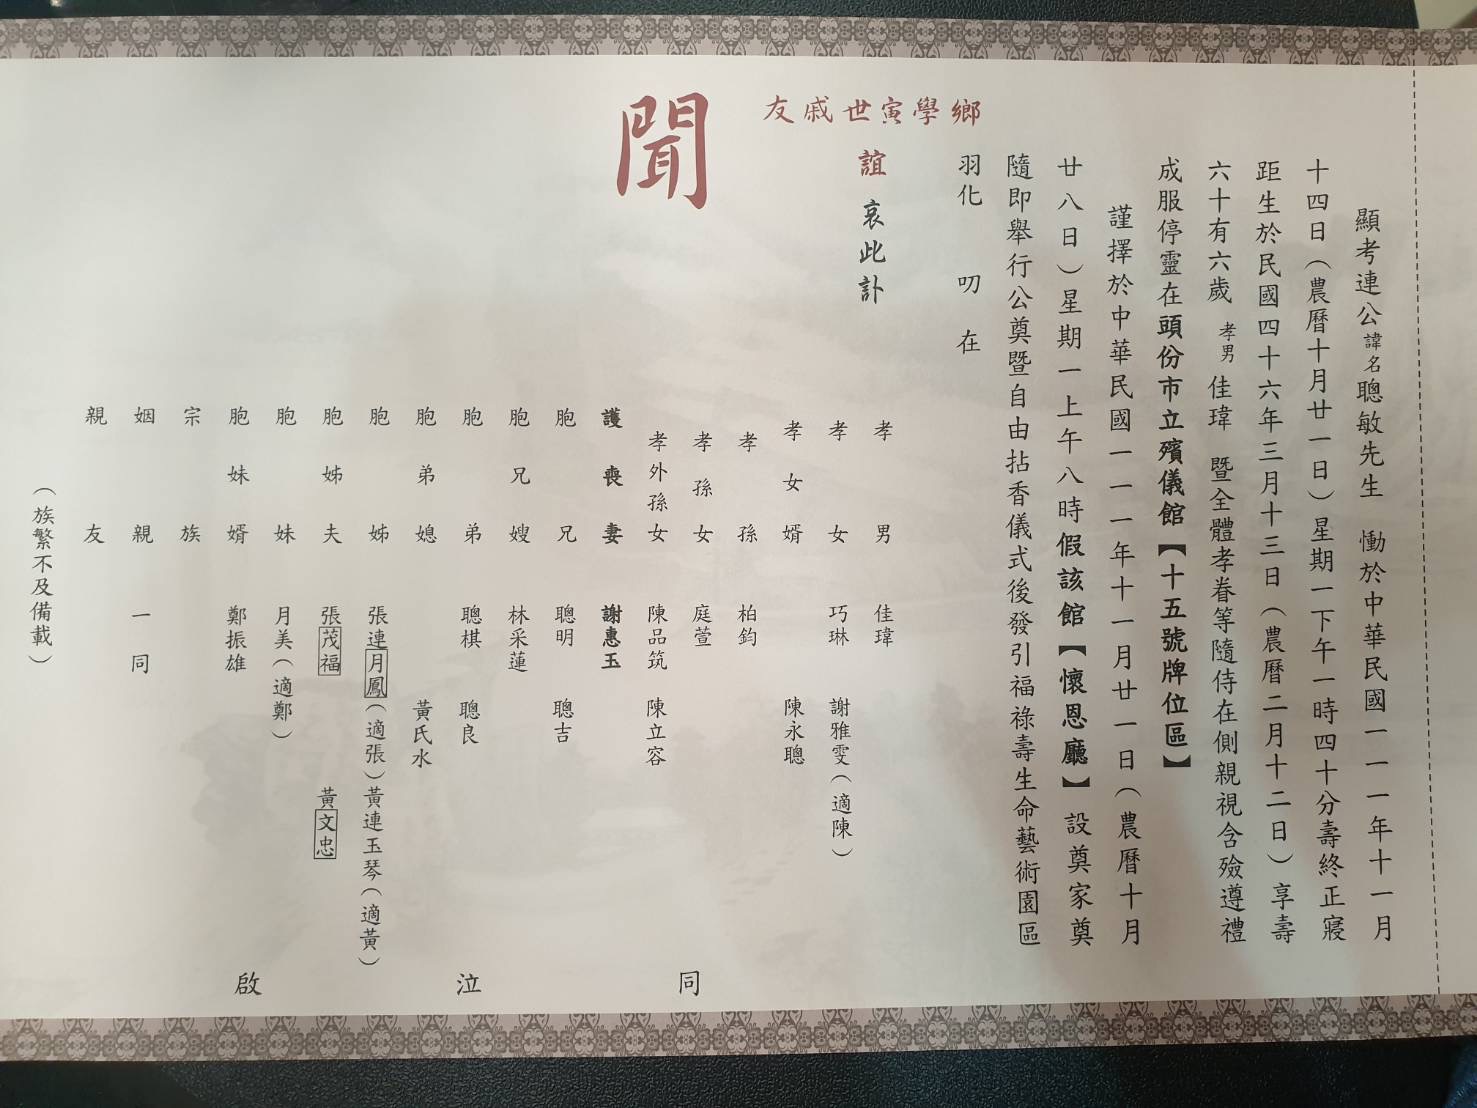 顯考連公諱名聰敏先生　慟於中華民國一一一年十一月
十四日（農曆十月廿一日）星期一下午一時四十分壽終正寢
距生於民國四十六年三月十三日（農曆二月十二日）享壽
六十有六歲　孝男　佳瑋　暨全體孝眷等隨侍在側親視含殮遵禮
成服停靈在頭份市立殯儀館【十五號牌位區】
謹擇於中華民國一一一年十一月廿一日（農曆十月
廿八日）星期一上午八時假該館【懷恩廳】設奠家奠
隨即舉行公奠暨自由拈香儀式後發引福祿壽生命藝術園區
羽化　叨　在
鄉學寅世戚友
誼　哀此訃
聞
孝男　佳瑋
孝女　巧琳　謝雅雯（適陳）
孝女婿　陳永聰
孝孫　柏鈞
孝孫女　庭萱
孝外孫女　陳品筑　陳立容
護喪妻　謝惠玉
胞兄　聰明　聰吉
胞兄嫂　林采蓮
胞弟　聰棋　聰良
胞弟媳　黃氏水
胞姊　張連月鳳（適張）黃連玉琴（適黃）
胞姊夫　張茂福　黃文忠
胞妹　月美（適鄭）
胞妹婿　鄭振雄
宗族
姻親　一同
親友
（族繁不及備載）
同　泣　啟